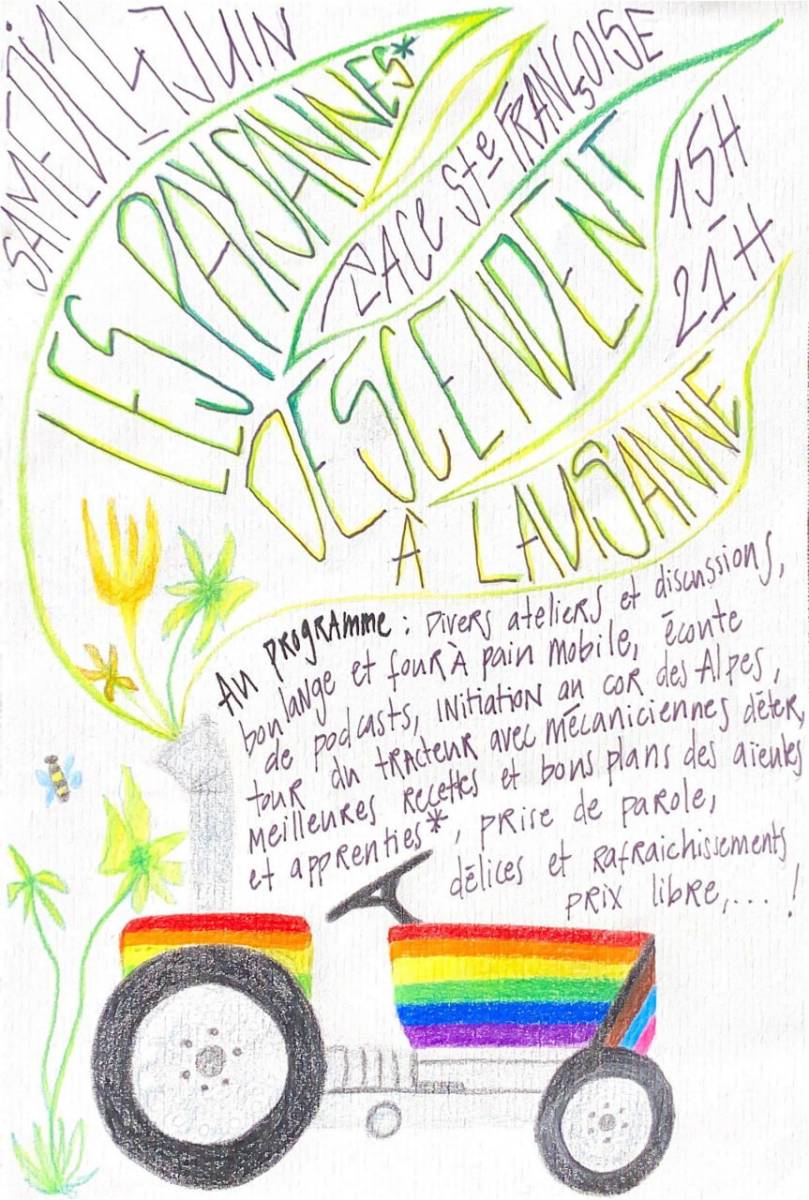 SAMEDI 14 JUIN
LES PAYSANNES*
PLACE Ste FRANÇOISE
DESCENDENT
15H
21H
À LAUSANNE
Au programme : Divers ateliers et discussions,
boulange et four à pain mobile, écoute
de podcasts, initiation au cor des Alpes,
tour du tracteur avec mécaniciennes déter,
Meilleures recettes et bons plans des aïeules
et apprenties*, prise de parole,
délices et rafraichissements
prix libre,... !